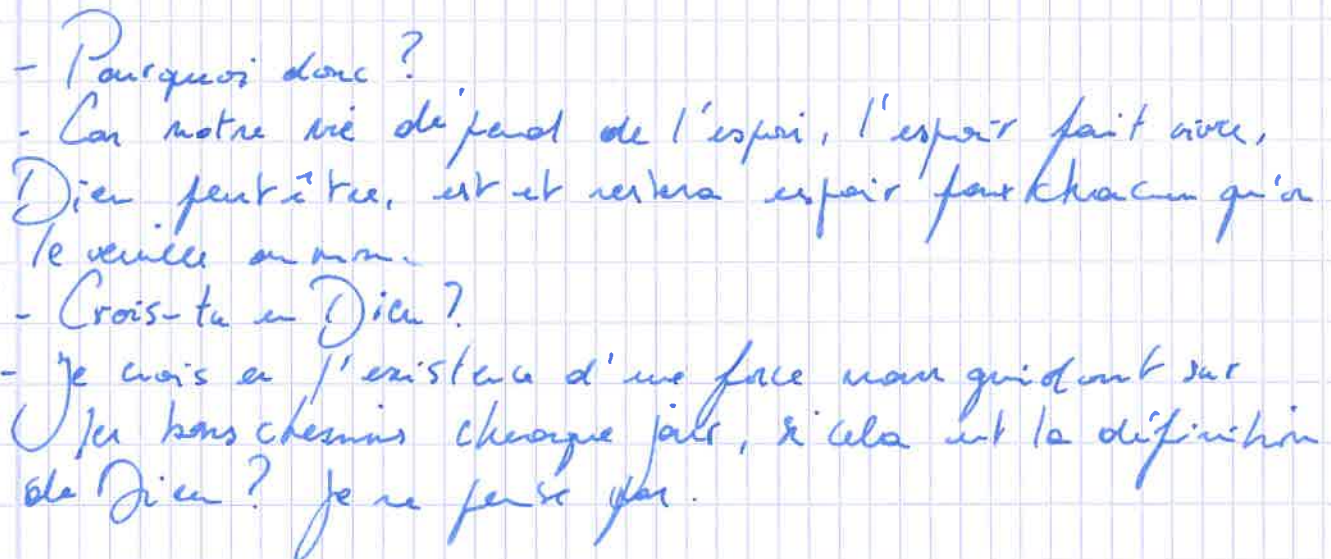 - Pourquoi donc ?
- Car notre vie dépend de l'espoi, l'espoir fait vivre,
Dieu peut être, est et restera espoir pour chacun qu'on
le veuille ou non.
- Crois-tu en Dieu ?
- Je crois en l'existence d'une force nous guidant sur
les bons chemins chaque jour, si cela est la définition
de Dieu ? Je ne pense pas.